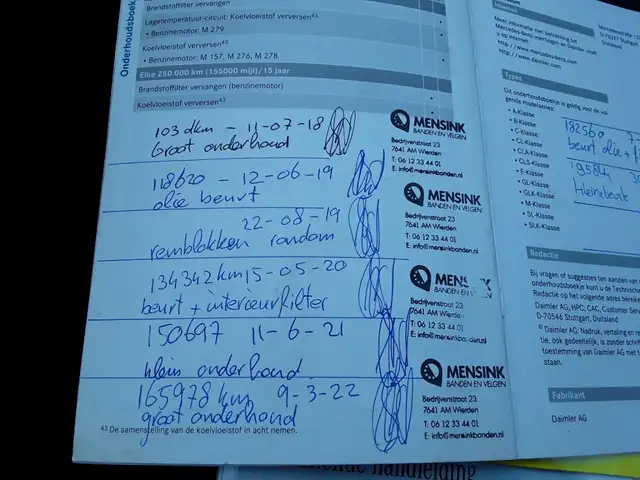 Onderhoudsboek
Brandstoffilter vervangen
Lagetemperatuur-circuit: Koelvloeistof verversen⁴³
• Benzinemotor: M 279
Koelvloeistof verversen⁴³
• Benzinemotor: M 157, M 276, M 278
Elke 250.000 km (155000 mijl)/15 jaar
Brandstoffilter vervangen (benzinemotor)
Koelvloeistof verversen⁴³
103 dkm - 11-07-18
Groot onderhoud
MENSINK
BANDEN EN VELGEN
Bedrijvenstraat 23
7641 AM Wierden
T: 06 12 33 44 01
E: info@mensinkbanden.nl
118620 - 12-06-19
olie beurt
MENSINK
BANDEN EN VELGEN
Bedrijvenstraat 23
7641 AM Wierden
T: 06 12 33 44 01
E: info@mensinkbanden.nl
22-08-19
remblokken rondom
134342 km 15-05-20
beurt + interieurfilter
MENS
BANDEN EN
Bedrijvenstraat 23
7641 AM Wierden
T: 06 12 33 44 01
E: info@mensinkbanden.nl
150697 11-6-21
klein onderhoud
165978 km 9-3-22
groot onderhoud
MENSINK
BANDEN EN VELGEN
Bedrijvenstraat 23
7641 AM Wierden
T: 06 12 33 44 01
E: info@mensinkbanden.nl
⁴³ De samenstelling van de koelvloeistof in acht nemen.
Internet
Meer informatie met betrekking tot
Mercedes-Benz-voertuigen en Daimler
u op internet:
http://www.mercedes-benz.com
http://www.daimler.com
Types
Dit onderhoudsboekje is geldig voor de vol-
gende modelseries:
• A-Klasse
• B-Klasse
• C-Klasse
• CL-Klasse
• CLA-Klasse
• CLS-Klasse
• E-Klasse
• G-Klasse
• GL-Klasse
• GLK-Klasse
• M-Klasse
• SL-Klasse
• SLK-Klasse
182560
beurt olie +
19584
kleine beurt
Redactie
Bij vragen of suggesties ten aanzien van
onderhoudsboekje kunt u de Technische
Redactie op het volgende adres bereiken:
Daimler AG, HPC: CAC, Customer Serv
D-70546 Stuttgart, Duitsland
© Daimler AG: Nadruk, vertaling en
ook gedeeltelijk, is zonder schrift
toestemming van Daimler AG niet
staan.
Fabrikant
Daimler AG
handleiding